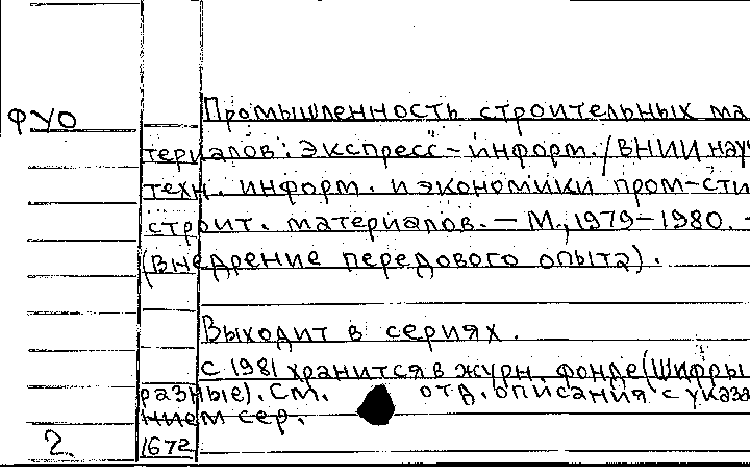 ФУО
Промышленность строительных ма
териалов: Экспресс-информ./ВНИИ науч
техн. информ. и экономики пром-сти
строит. материалов. — М., 1979–1980. –
(Внедрение передового опыта).
Выходит в сериях.
С 1981 хранится в журн. фонде (Шифры
разные). См. отд. описания с указа
нием сер.
2. 1672